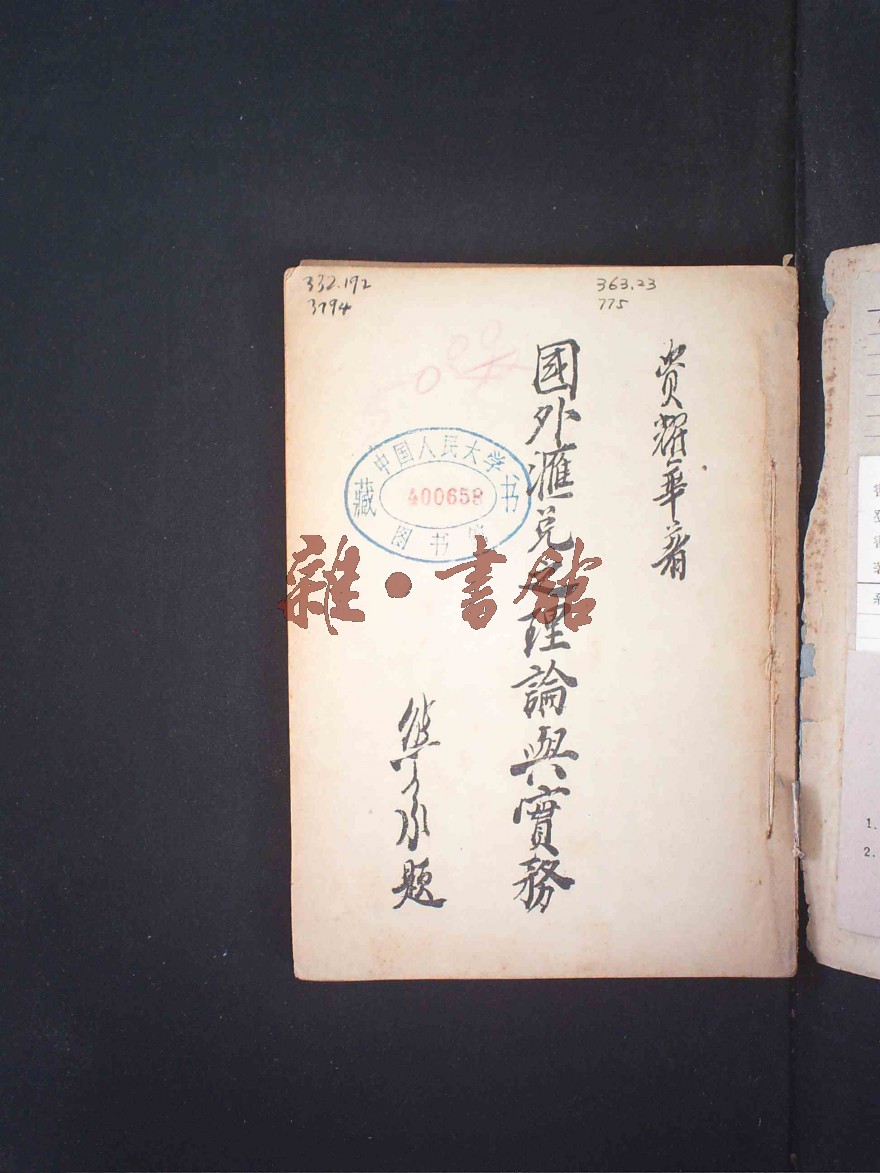 332.192
3794
363.23
775
資耀華著
國外滙兌之理論與實務
題
中国人民大学
藏 400658 书
图书馆
雜·書館
1.
2.